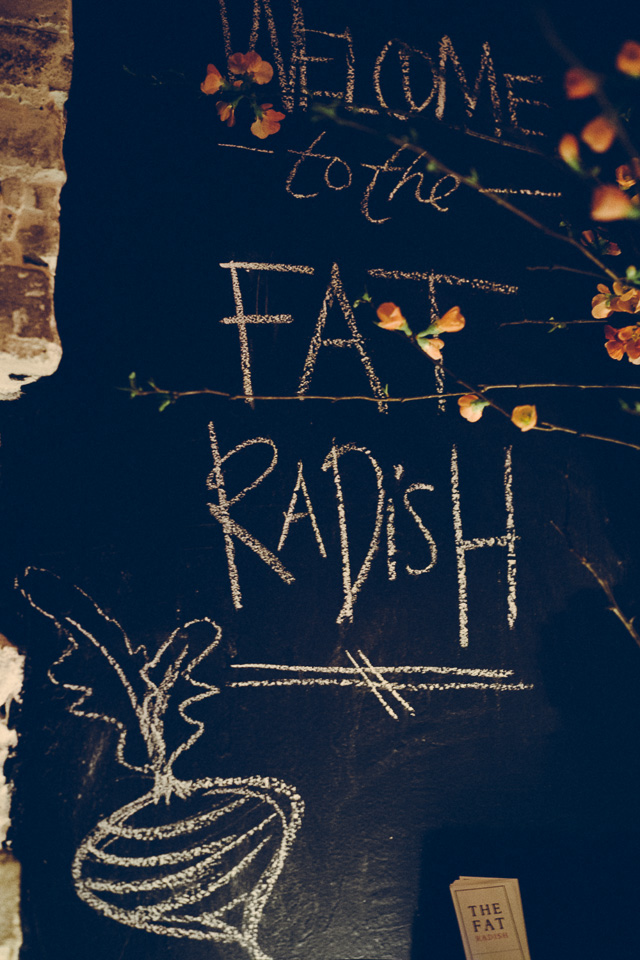 WELCOME
to the
FAT
RADiSH
THE
FAT
RADISH